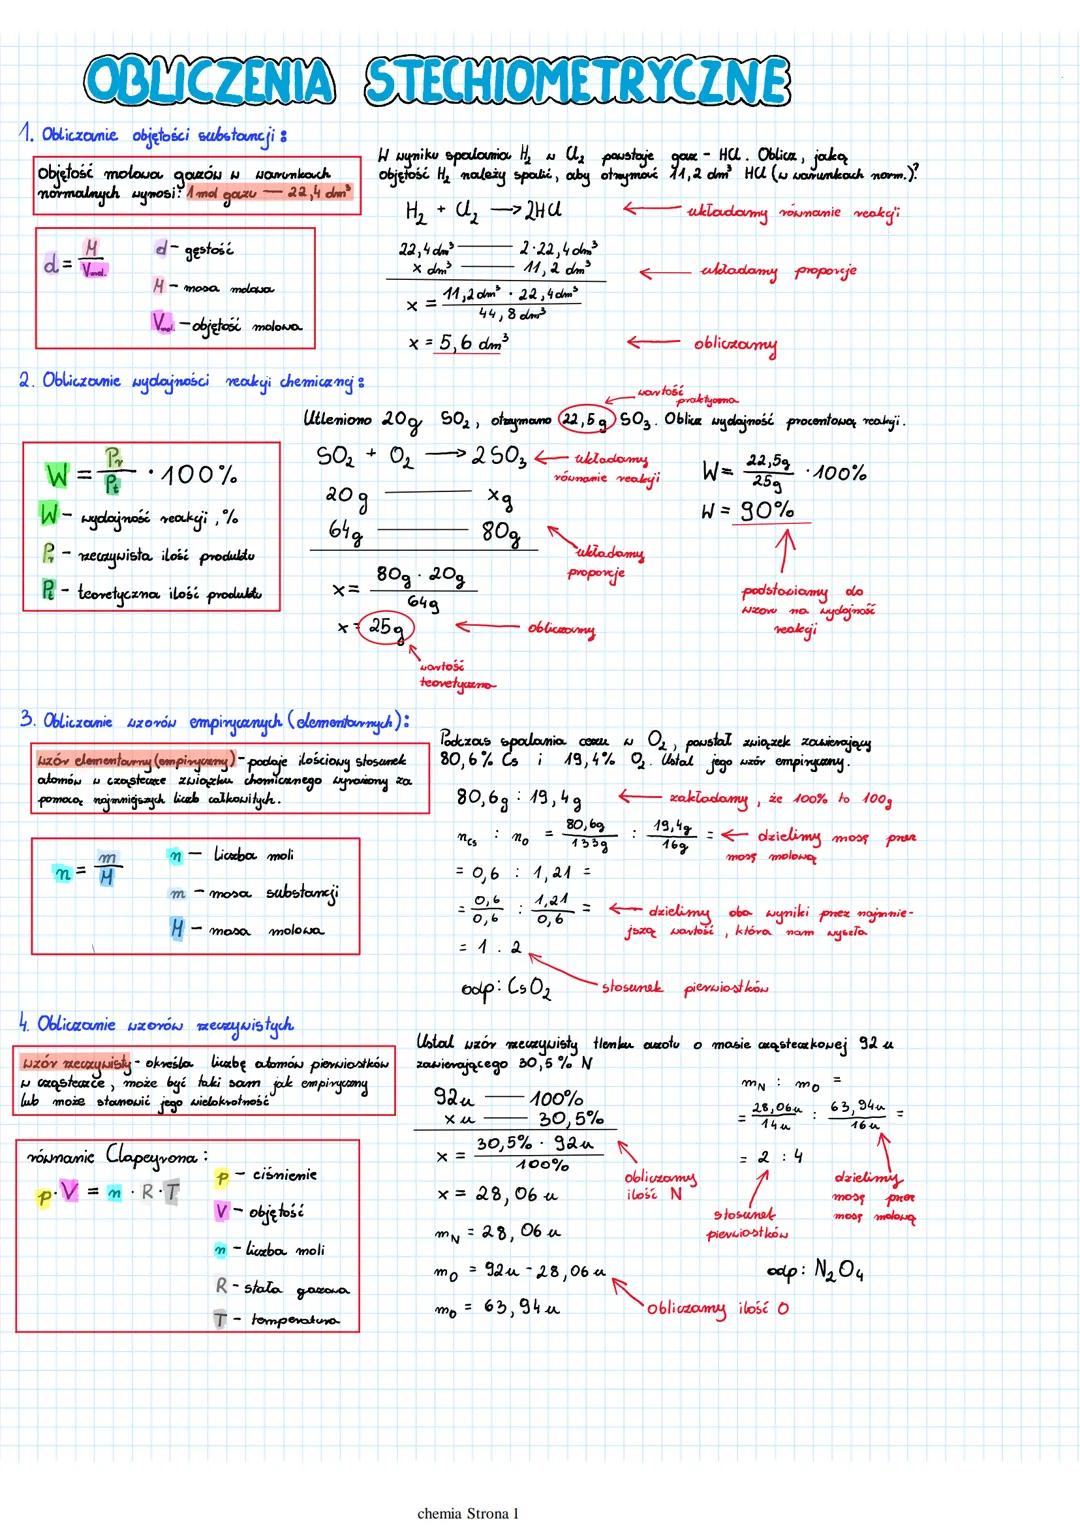 OBLICZENIA STECHIOMETRYCZNE
1. Obliczanie objętości substancji:
Objętość molowa gazów w warunkach
normalnych wynosi: 1 mol gazu — 22,4 dm³
d = M / Vmol.
d - gęstość
M - masa molowa
Vmol. - objętość molowa
W wyniku spalania H₂ w Cl₂ powstaje gaz - HCl. Oblicz, jaką
objętość H₂ należy spalić, aby otrzymać 11,2 dm³ HCl (w warunkach norm.)?
H₂ + Cl₂ → 2HCl ← układamy równanie reakcji
22,4 dm³ — 2·22,4 dm³
x dm³ — 11,2 dm³ ← układamy proporcje
x = 11,2 dm³ · 22,4 dm³ / 44,8 dm³
x = 5,6 dm³ ← obliczamy
2. Obliczanie wydajności reakcji chemicznej:
wartość
praktyczna
Utleniono 20g SO₂, otrzymano 22,5 g SO₃. Oblicz wydajność procentową reakcji.
W = Pr / Pt · 100%
W - wydajność reakcji, %
Pr - rzeczywista ilość produktu
Pt - teoretyczna ilość produktu
SO₂ + O₂ → 2SO₃ ← układamy
równanie reakcji
20 g — x g
64g — 80g
układamy
proporcje
x = 80g · 20g / 64g
x = 25g ← obliczamy
wartość
teoretyczna
W = 22,5g / 25g · 100%
W = 90%
podstawiamy do
wzoru na wydajność
reakcji
3. Obliczanie wzorów empirycznych (elementarnych):
wzór elementarny (empiryczny) - podaje ilościowy stosunek
atomów w cząsteczce związku chemicznego wyrażony za
pomocą najmniejszych liczb całkowitych.
n = m / M
n - liczba moli
m - masa substancji
M - masa molowa
Podczas spalania cezu w O₂, powstał związek zawierający
80,6% Cs i 19,4% O₂. Ustal jego wzór empiryczny.
80,6g : 19,4g ← zakładamy, że 100% to 100g
nCs : nO = 80,6g / 133g : 19,4g / 16g = ← dzielimy masę przez
masę molową
= 0,6 : 1,21 =
= 0,6 / 0,6 : 1,21 / 0,6 = ← dzielimy oba wyniki przez najmnie-
jszą wartość, która nam wyszła
= 1 : 2
odp: CsO₂
stosunek pierwiastków
4. Obliczanie wzorów rzeczywistych
wzór rzeczywisty - określa liczbę atomów pierwiastków
w cząsteczce, może być taki sam jak empiryczny
lub może stanowić jego wielokrotność
równanie Clapeyrona:
p · V = n · R · T
p - ciśnienie
V - objętość
n - liczba moli
R - stała gazowa
T - temperatura
Ustal wzór rzeczywisty tlenku azotu o masie cząsteczkowej 92 u
zawierającego 30,5 % N
92u — 100%
x u — 30,5%
x = 30,5% · 92u / 100%
x = 28,06 u
obliczamy
ilość N
mN = 28,06 u
mO = 92u - 28,06 u
mO = 63,94 u
obliczamy ilość O
mN : mO =
= 28,06u / 14u : 63,94u / 16u =
= 2 : 4
stosunek
pierwiastków
dzielimy
masę przez
masę molową
odp: N₂O₄
chemia Strona 1